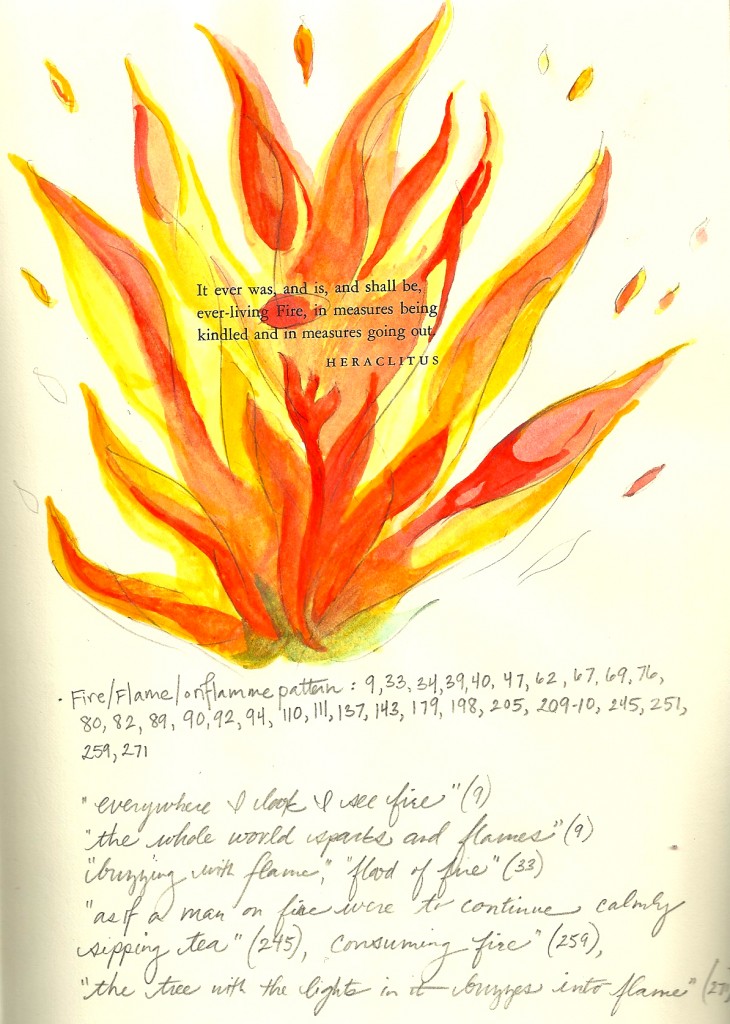 It ever was, and is, and shall be,
ever-living Fire, in measures being
kindled and in measures going out.
HERACLITUS
· Fire/Flame/oriflamme pattern : 9, 33, 34, 39, 40, 47, 62, 67, 69, 76,
80, 82, 89, 90, 92, 94, 110, 111, 137, 143, 179, 198, 205, 209-10, 245, 251,
259, 271
"everywhere I look I see fire" (9)
"the whole world sparks and flames" (9)
"buzzing with flame," "flood of fire" (33)
"as if a man on fire were to continue calmly
sipping tea" (245), consuming fire" (259),
"the tree with the lights in it buzzes into flame"